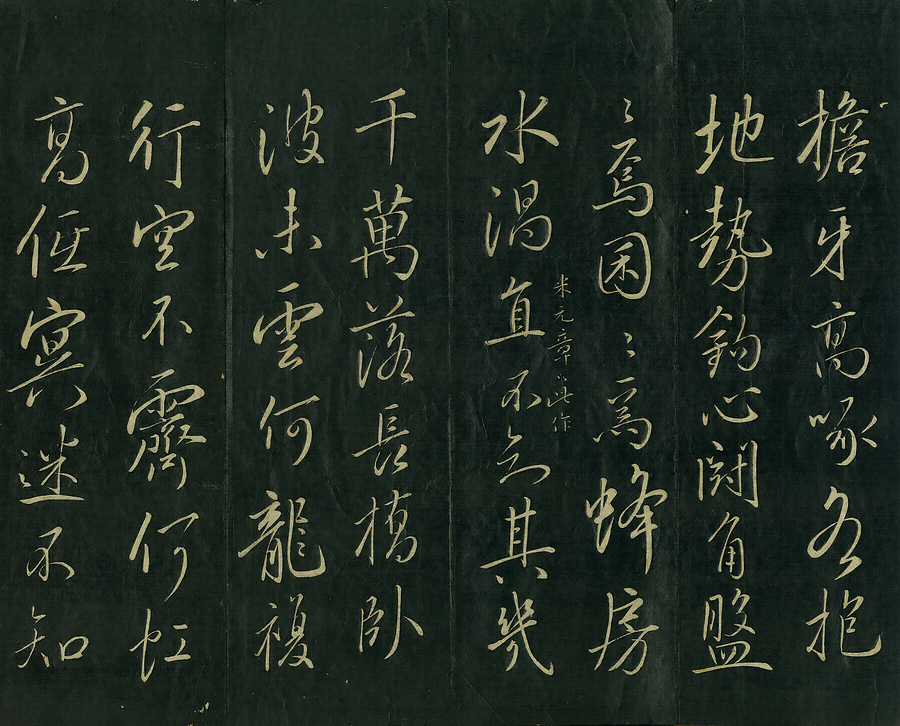 檐牙高啄各抱
地勢鈎心鬪角盤
〻焉囷〻焉蜂房
水渦直不知其幾
米元章以此作
千萬落長橋臥
波未雲何龍複
行空不霽何虹
高低冥迷不知